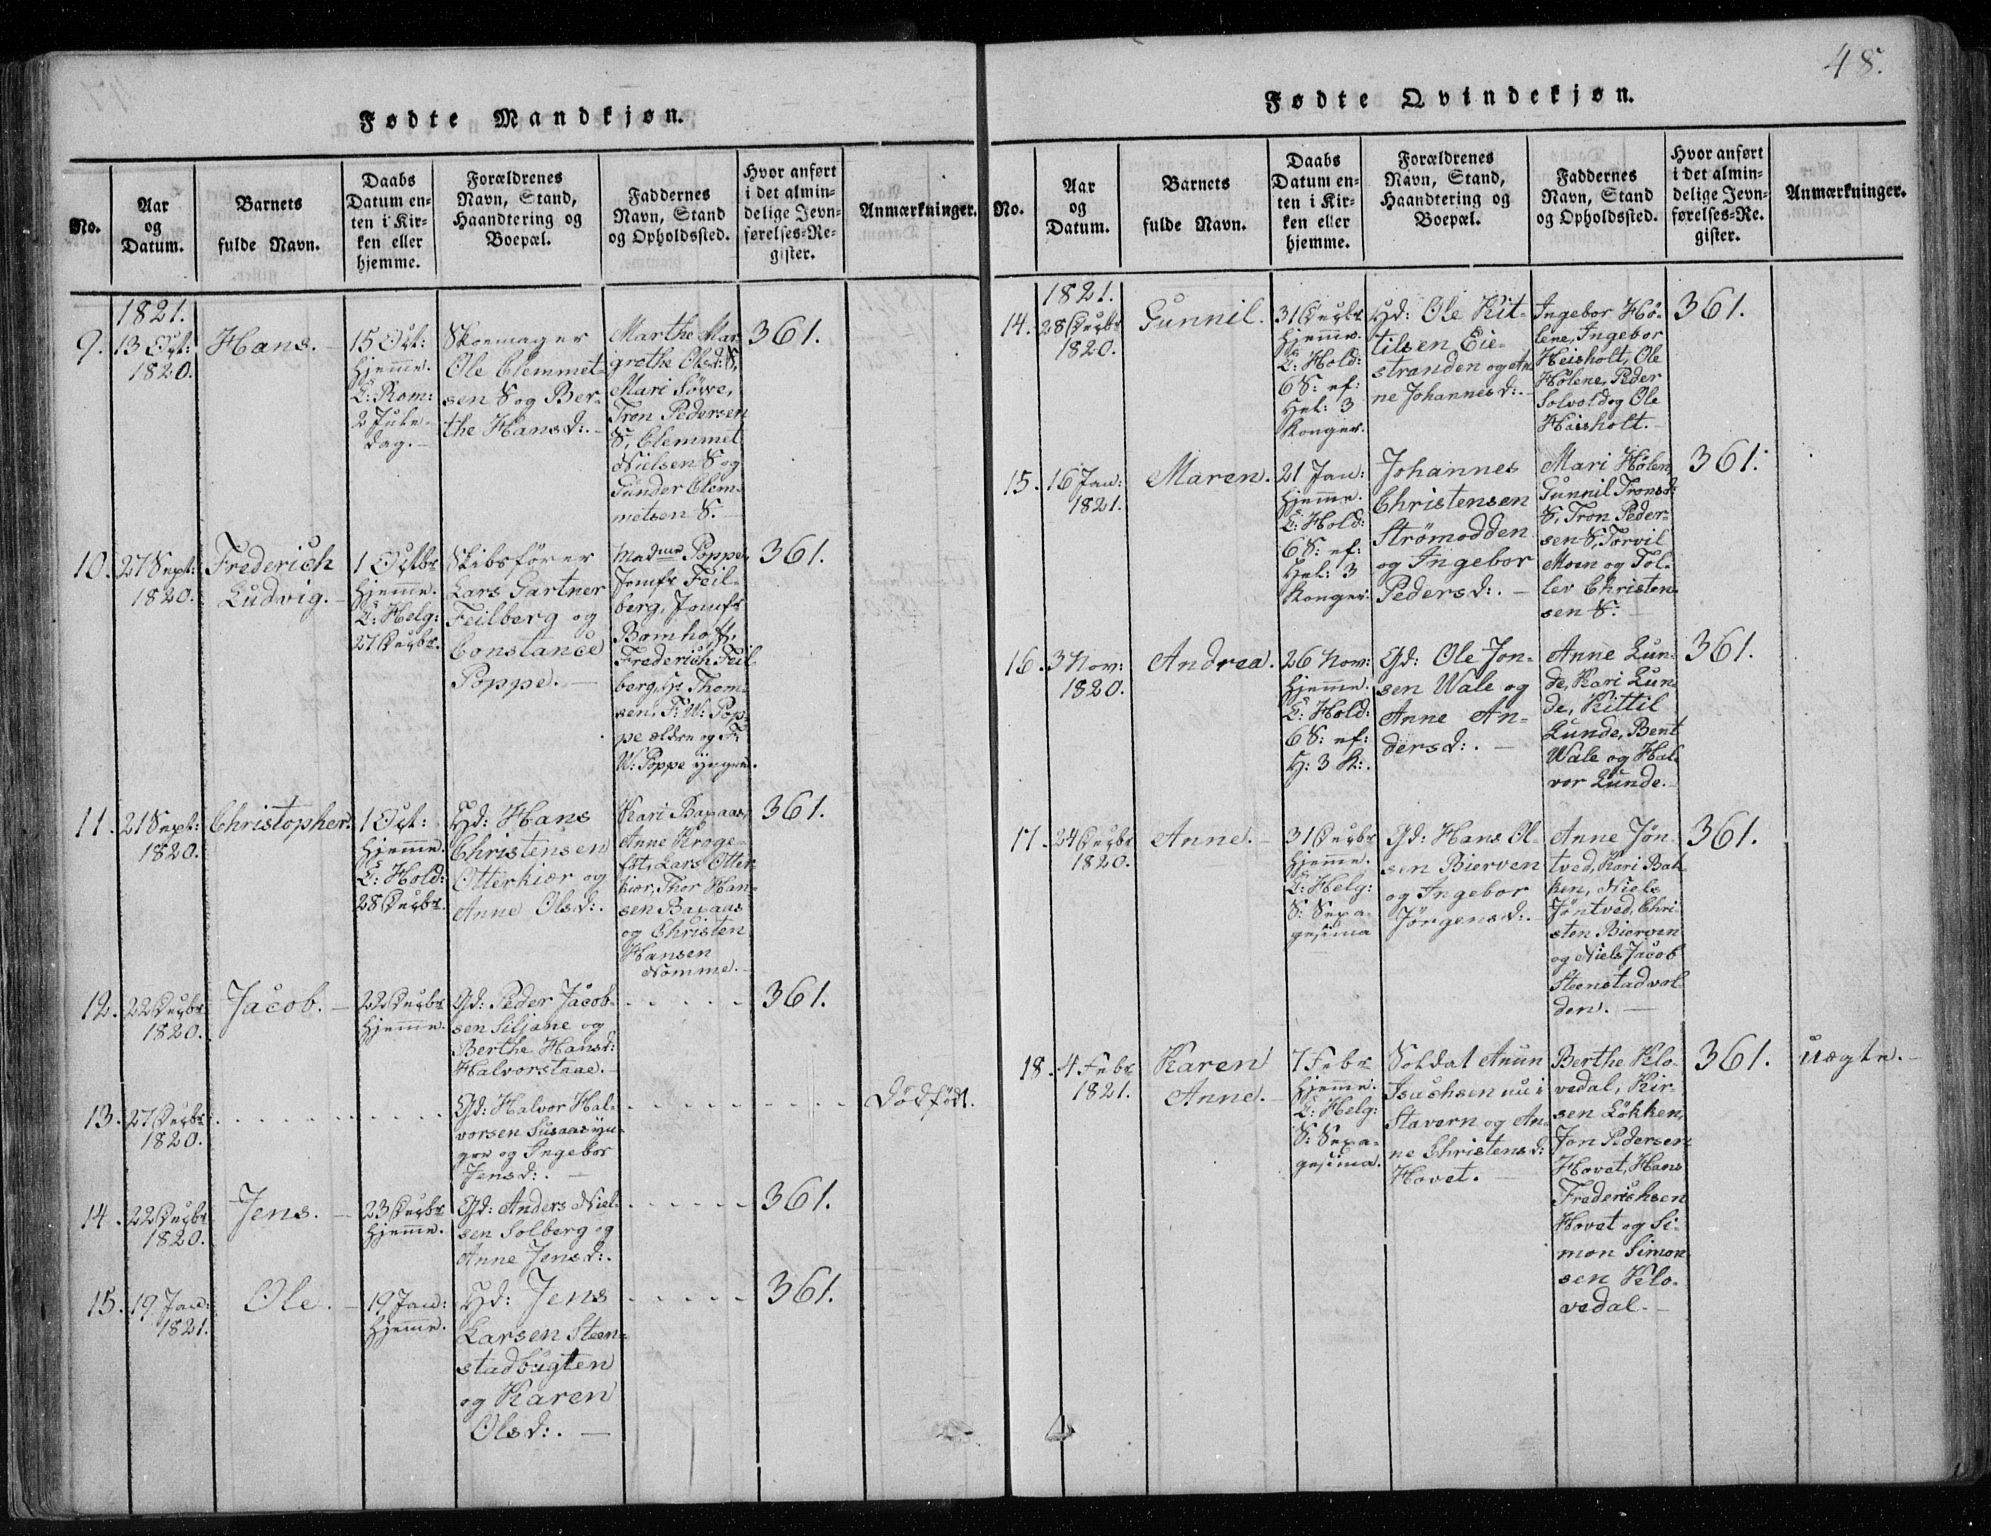 48.
Fødte Mandkjøn.
No.
Aar
og
Datum.
Barnets
fulde Navn.
Daabs
Datum en-
ten i Kir-
ken eller
hjemme.
Forældrenes
Navn, Stand,
Haandtering og
Boepæl.
Faddernes
Navn, Stand
og Opholdssted.
Hvor anført
i det almin-
delige Jevn-
førelses-Re-
gister.
Anmærkninger.
1821.
9.
13 Oct:
1820.
Hans.
15 Oct:
hjemme.
C: Rom:
2 Jule-
dag.
Skoemager
Ole Clemmet-
sen S og Ber-
the Hansd:.
Marthe Mar-
grethe Olsd: S,
Mari Söwe,
Tron Pedersen
S, Clemmet
Nielsen S og
Gunder Clem-
metsen S.
361.
10.
27 Sept:
1820.
Frederich
Ludvig.
1 Octbr
hjemme.
C: Helg:
27 Decbr.
Skibsförer
Lars Gartner
Feilberg og
Constance
Poppe.
Madme Poppe,
Jomfr Feil-
berg, Jomfr
Bomhoff,
Frederich Feil-
berg, Hr Thom-
sen, F: W: Pop-
pe ældre og F:
W: Poppe yngre.
361.
11.
21 Sept:
1820.
Christopher.
1 Oct:
hjemme.
C: Hold:
28 Decbr.
Hd: Hans
Christensen
Otterkiær og
Anne Olsd:.
Kari Baxaas,
Anne Kroge-
Lars Otter-
kiær, Thor Han-
sen Baxaas
og Christen
Hansen
Nomme.
361.
12.
22 Decbr
1820.
Jacob.
22 Decbr
hjemme.
Gd: Peder Jacob-
sen Siljane og
Berthe Hansd:
Halvorstaae.
361.
13.
27 Decbr
1820.
Gd: Halvor Hal-
vorsen Susaas yn-
gre og Ingebor
Jensd:.
Dödfödt.
14.
22 Decbr
1820.
Jens.
23 Decbr
hjemme.
Gd: Anders Niel-
sen Solberg og
Anne Jensd:.
361.
15.
19 Jan:
1821.
Ole.
19 Jan:
hjemme.
Hd: Jens
Larsen Steen-
stadbugten
og Karen
Olsd:.
361.
Fødte Qvindekjøn.
No.
Aar
og
Datum.
Barnets
fulde Navn.
Daabs
Datum en-
ten i Kir-
ken eller
hjemme.
Forældrenes
Navn, Stand,
Haandtering og
Boepæl.
Faddernes
Navn, Stand
og Opholdssted.
Hvor anført
i det almin-
delige Jevn-
førelses-Re-
gister.
Anmærkninger.
1821.
14.
28 Decbr
1820.
Gunnil.
31 Decbr
hjemme.
C: Hold:
6 S: ef:
Hel: 3
Konger.
Hd: Ole Kit-
tilsen Eie-
stranden og An-
ne Johannesd:.
Ingebor Hö-
lene, Ingebor
Heisholt, Ole
Hölene, Peder
Solvold og Ole
Heisholt.
361.
15.
16 Jan:
1821.
Maren.
21 Jan:
hjemme.
C: Hold:
6 S: ef:
Hel: 3
Konger.
Johannes
Christensen
Strömodden
og Ingebor
Pedersd:.
Mari Hölen,
Gunnil Tronsd:
S, Tron Peder-
sen S, Torvil
Moen og Tol-
lev Christen-
sen S.
361.
16.
3 Nov:
1820.
Andrea.
26 Nov:
hjemme.
C: Hold:
6 S: ef:
H: 3 K:.
Gd: Ole Jon-
sen Wale og
Anne An-
dersd:.
Anne Lun-
de, Kari Lun-
de, Kittil
Lunde, Bent
Wale og Hal-
vor Lunde.
361.
17.
24 Decbr
1820.
Anne.
31 Decbr
hjemme.
C: Helg:
S: Sexa-
gesima
Gd: Hans Ol-
sen Bierven
og Ingebor
Jörgensd:.
Anne Jön-
tved, Kari Bak-
ken, Niels
Jöntved, Chri-
sten Bierven
og Niels Jacob
Steenstadval-
den.
361.
18.
4 Febr
1821.
Karen
Anne.
7 Febr
hjemme.
C: Helg:
S: Sexa-
gesima.
Soldat Anun
Isachsen nu i
Stavern og An-
ne Christensd:
Hovet.
Berthe Klo-
vedal, Kir-
sen Lökken,
Jon Pedersen
Hovet, Hans
Frederichsen
Hovet og Si-
mon Simon-
sen Klo-
vedal.
361.
uægte.